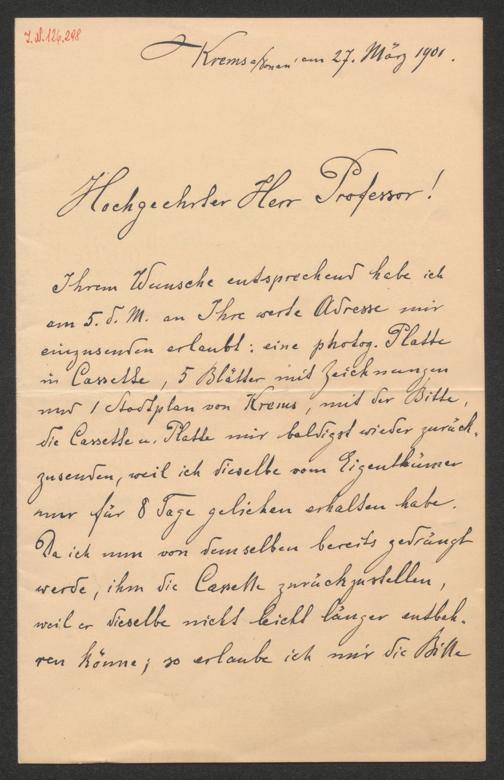 J.N. 126.298
Krems a/Donau, am 27. März 1901.
Hochgeehrter Herr Professor!
Ihrem Wunsche entsprechend habe ich
am 5. d. M. an Ihre werte Adresse mir
einzusenden erlaubt: eine photog. Platte
in Cassette, 5 Blätter mit Zeichnungen
und 1 Stadtplan von Krems, mit der Bitte,
die Cassette u. Platte mir baldigst wieder zurück-
zusenden, weil ich dieselbe vom Eigenthümer
nur für 8 Tage geliehen erhalten habe.
Da ich nun von demselben bereits gedrängt
werde, ihm die Cassette zurückzustellen,
weil er dieselbe nicht leicht länger entbeh-
ren könne; so erlaube ich mir die Bitte